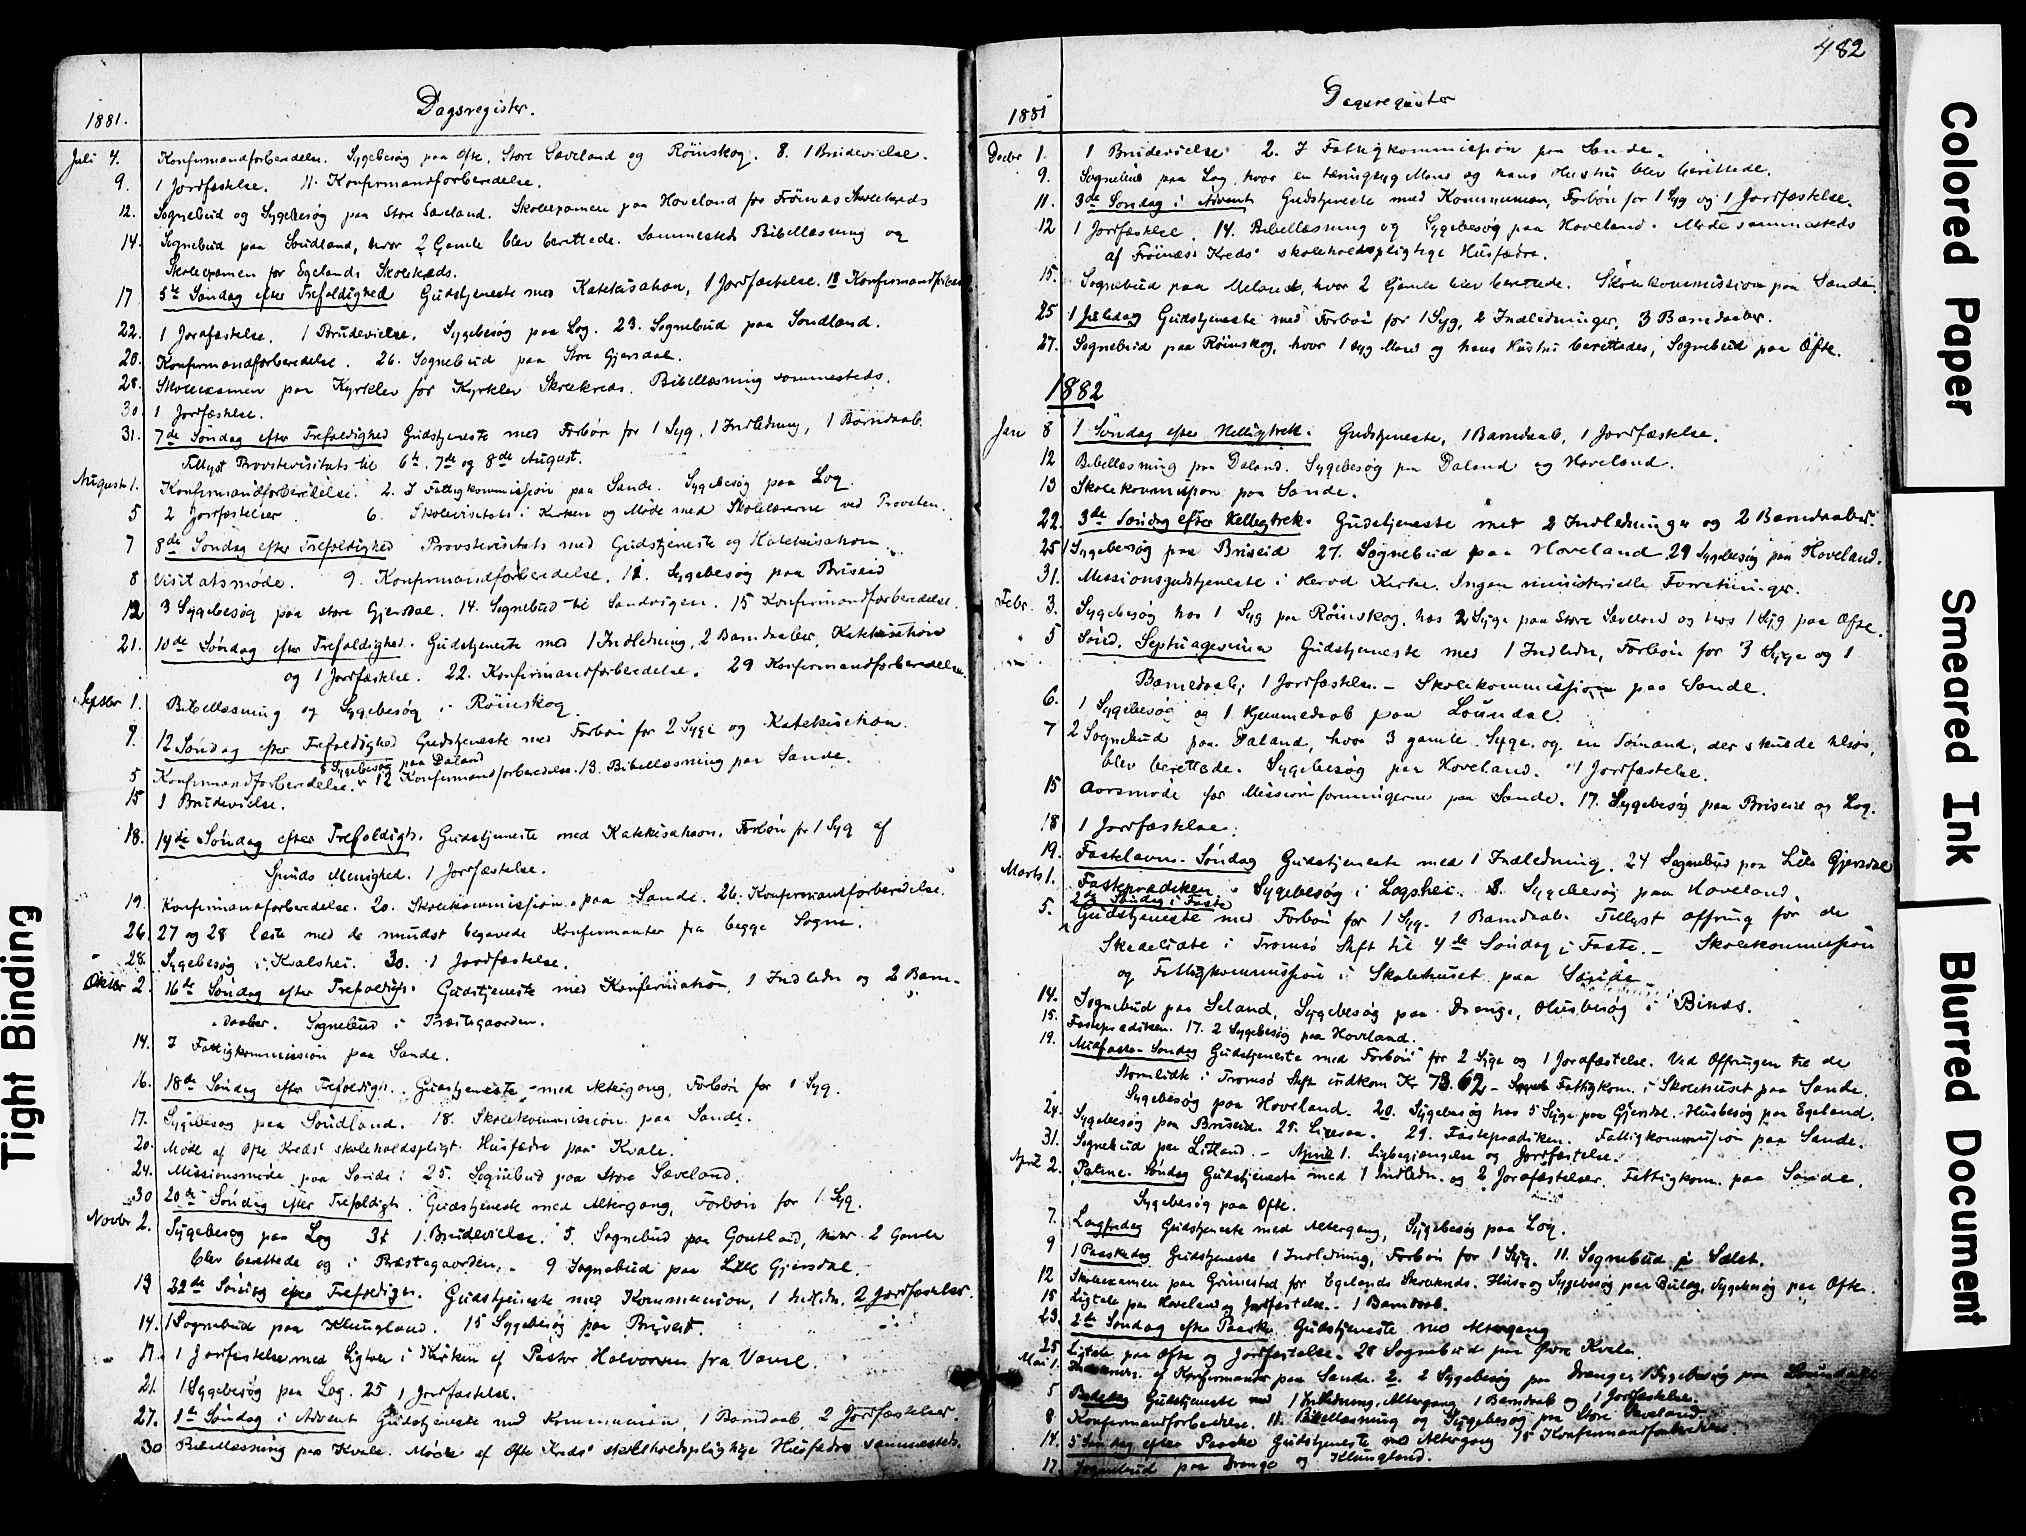 1881.
Dagsregister.
Juli 4. Konfirmandforberedelse. Sygebesøg paa Ofte, Store Sæveland og Röinskog. 8. 1 Brudevielse.
9. 1 Jordfæstelse. 11. Konfirmandforberedelse.
12. Sognebud og Sygebesøg paa Store Sæveland. Skoleexamen paa Hoveland for Fröinæs Skolekreds
14. Sognebud paa Sondland, hvor 2 Gamle blev berettede. Sammesteds Bibellæsning og
Skoleexamen for Egelands Skolekreds.
17 5te Søndag efter Trefoldighed Gudstjeneste med Katekisation, 1 Jordfæstelse. 18 Konfirmandforbered
22. 1 Jordfæstelse. 1 Brudevielse. Sygebesøg paa Log. 23. Sognebud paa Sondland.
20. Konfirmandforberedelse. 26. Sognebud paa Store Gjersdal.
28. Skoleexamen paa Kyrklev for Kyrklev Skolekreds. Bibellæsning sammesteds.
30. 1 Jordfæstelse.
31. 7de Søndag efter Trefoldighed Gudstjeneste med Forbön for 1 Syg, 1 Indledning, 1 Barndaab.
Tillyst Provstevisitats til 6te, 7de og 8de August.
August 1. Konfirmandforberedelse. 2. I Fattigkommission paa Sande. Sygebesøg paa Log.
5 2 Jordfæstelser. 6. Skolevisitats i Kirken og Møde med Skolelærerne ved Provsten.
7 8de Søndag efter Trefoldighed Provstevisitats med Gudstjeneste og Katekisation
8 Visitatsmøde. 9. Konfirmandforberedelse. 11. Sygebesøg paa Briseid
12 3 Sygebesøg paa store Gjersdal. 14. Sognebud til Sandvigen. 15 Konfirmandforberedelse.
21. 10de Søndag efter Trefoldighed. Gudstjeneste med 1 Indledning, 2 Barndaaber, Katekisation
og 1 Jordfæstelse. 22. Konfirmandforberedelse. 29 Konfirmandforberedelse
Septbr 1. Bibellæsning og Sygebesøg i Röinskog
4. 12 Søndag efter Trefoldighed Gudstjeneste med Forbön for 2 Syge og Katekisation.
8 Sygebesøg paa Daland
5 Konfirmandforberedelse. 12 Konfirmandforberedelse. 13. Bibellæsning paa Sande.
15 1 Brudevielse.
18. 14de Søndag efter Trefoldigh. Gudstjeneste med Katekisation. Forbön for 1 Syg af
Spinds Menighed. 1 Jordfæstelse.
19. Konfirmandforberedelse. 20. Skolekommission paa Sande. 26. Konfirmandforberedelse.
26. 27 og 28 læste med de mindst begavede Konfirmanter fra begge Sogne.
28. Sygebesøg i Kvalshei. 30. 1 Jordfæstelse.
Oktbr 2. 16de Søndag efter Trefoldigh. Gudstjeneste med Konfirmation, 1 Indledn og 2 Barn-
daaber. Sognebud i Præstegaarden.
14. I Fattigkommission paa Sande.
16. 18de Søndag efter Trefoldigh. Gudstjeneste med Altergang, Forbön for 1 Syg.
17. Sygebesøg paa Sondland. 18. Skolekommission paa Sande.
20. Møde af Ofte Kreds' skoleholdspligt. Husfædre paa Kvale.
24. Missionsmøde paa Sande. 25. Sognebud paa Store Sæveland.
30 20de Søndag efter Trefoldigh. Gudstjeneste med Altergang, Forbön for 1 Syg.
Novbr 2. Sygebesøg paa Log 3t 1 Brudevielse. 5. Sognebud paa Goutland, hvor 2 Gamle
blev berettede og i Præstegaarden. 9 Sognebud paa Lille Gjersdal
13 22de Søndag efter Trefoldigh. Gudstjeneste med Kommunion, 1 Indledn. 2 Jordfæstelser.
14. 1 Sognebud paa Klungland. 15 Sygebesøg paa Briseid.
17. 1 Jordfæstelse med Ligtale i Kirken af Pastor Halvorsen fra Vanse.
21. 1 Sygebesøg paa Log. 25 1 Jordfæstelse.
27. 1te Søndag i Advent Gudstjeneste med Kommunion, 1 Barndaab, 2 Jordfæstelser.
30 Bibellæsning paa Kvale. Møde af Ofte Kreds' skoleholdspligtige Husfædre sammesteds.
482
1881
Dagsregister
Decbr 1. 1 Brudevielse 2. I Fattigkommission paa Sande.
9. Sognebud paa Log, hvor en tæringssyg Mand og hans Hustru blev berettede.
11. 3de Søndag i Advent Gudstjeneste med Kommunion, Forbön for 1 Syg og 1 Jordfæstelse.
12 1 Jordfæstelse. 14. Bibellæsning og Sygebesøg paa Hoveland. Møde sammesteds
af Fröinæs Kreds' skoleholdspligtige Husfædre.
15. Sognebud paa Meland, hvor 2 Gamle blev berettede. Skolekommission paa Sande.
25 1 Juledag Gudstjeneste med Forbön for 1 Syg, 2 Indledninger, 3 Barndaaber.
27. Sognebud paa Röinskog, hvor 1 syg Mand og hans Hustru berettedes, Sognebud paa Ofte.
1882
Jan 8 1 Søndag efter Helligtrek. Gudstjeneste, 1 Barndaab, 1 Jordfæstelse.
12 Bibellæsning paa Daland. Sygebesøg paa Daland og Hoveland.
13 Skolekommission paa Sande.
22. 3de Søndag efter Helligtrek. Gudstjeneste med 2 Indledninger og 2 Barndaaber.
25 1 Sygebesøg paa Briseid 27. Sognebud paa Hoveland 29 Sygebesøg paa Hoveland.
31. Missionsgudstjeneste i Herod Kirke. Ingen ministerielle Forretninger.
Febr. 3. Sygebesøg hos 1 Syg paa Röinskog, hos 2 Syge paa Store Sæveland og hos 1 Syg paa Ofte.
5 Sønd. Septuagesima Gudstjeneste med 1 Indledn, Forbön for 3 Syge og 1
Barnedaab, 1 Jordfæstelse. - Skolekommission paa Sande.
6. 1 Sygebesøg og 1 Hjemmedaab paa Loundal.
7 2 Sognebud paa Daland, hvor 3 gamle Syge og en Sømand, der skulde tilsøs,
blev berettede. Sygebesøg paa Hoveland. 1 Jordfæstelse.
15 Aarsmøde for Missionsforeningerne paa Sande. 17. Sygebesøg paa Briseid og Log.
18 1 Jordfæstelse.
19. Fastelavns-Søndag Gudstjeneste med 1 Indledning. 24 Sognebud paa Lille Gjersdal
Marts 1. Fasteprædiken. Sygebesøg i Logshei. 3. Sygebesøg paa Hoveland.
2de Søndag i Faste
5. Gudstjeneste med Forbön for 1 Syg. 1 Barndaab. Tillyst Offring for de
Skadelidte i Tromsö Stift til 4de Søndag i Faste. - Skolekommission
og Fattigkommission i Skolehuset paa Sande
14. Sognebud paa Seland, Sygebesøg paa Drange, Husbesøg i Binds.
15. Fasteprædiken. 17. 2 Sygebesøg paa Hoveland.
19. Midfaste-Søndag Gudstjeneste med Forbön for 2 Syge og 1 Jordfæstelse. Ved Offringen til de
Stormlidte i Tromsö Stift indkom Kr 73.62 - Fattigkom. i Skolehuset paa Sande.
Sygebesøg paa Hoveland. 20. Sygebesøg hos 5 Syge paa Gjersdal. Husbesøg paa Egeland.
24. Sygebesøg paa Briseid. 25. 29. Fasteprædiken. Fattigkommission paa Sande.
31. Sognebud paa Litland. - April 1. Ligbegjængelse og Jordfæstelse.
April 2. Palme-Søndag Gudstjeneste med 1 Indledn. og 2 Jordfæstelser. Fattigkom. paa Sande.
Sygebesøg paa Ofte.
7. Langfredag Gudstjeneste med Altergang, Sygebesøg paa Log.
9 1 Paaskedag Gudstjeneste 1 Indledning, Forbön for 1 Syg. 11. Sognebud
12 Skoleexamen paa Grimestad for Egelands Skolekreds. Hus- og Sygebesøg paa Buløg, Sygebesøg paa Ofte.
15 Ligtale paa Hoveland og Jordfæstelse. 1 Barndaab.
23. 2de Søndag efter Paaske Gudstjeneste med Altergang
25 Ligtale paa Ofte og Jordfæstelse. 28 Sognebud paa Øvre Kvale.
Mai 1. af Konfirmander paa Sande. 2. 2 Sygebesøg paa Drange, 1 Sygebesøg paa Loundal
5 Bededag Gudstjeneste med 1 Indledning, Altergang 1 Barndaab og 1 Jordfæstelse.
8 Konfirmandforberedelse. 11. Bibellæsning og Sygebesøg paa Store Sæveland.
14. 5 Søndag efter Paaske Gudstjeneste med Altergang 15 Konfirmandforberedelse.
17. Sognebud paa Drange og Klungland.
Tight Binding
Colored Paper
Smeared Ink
Blurred Document